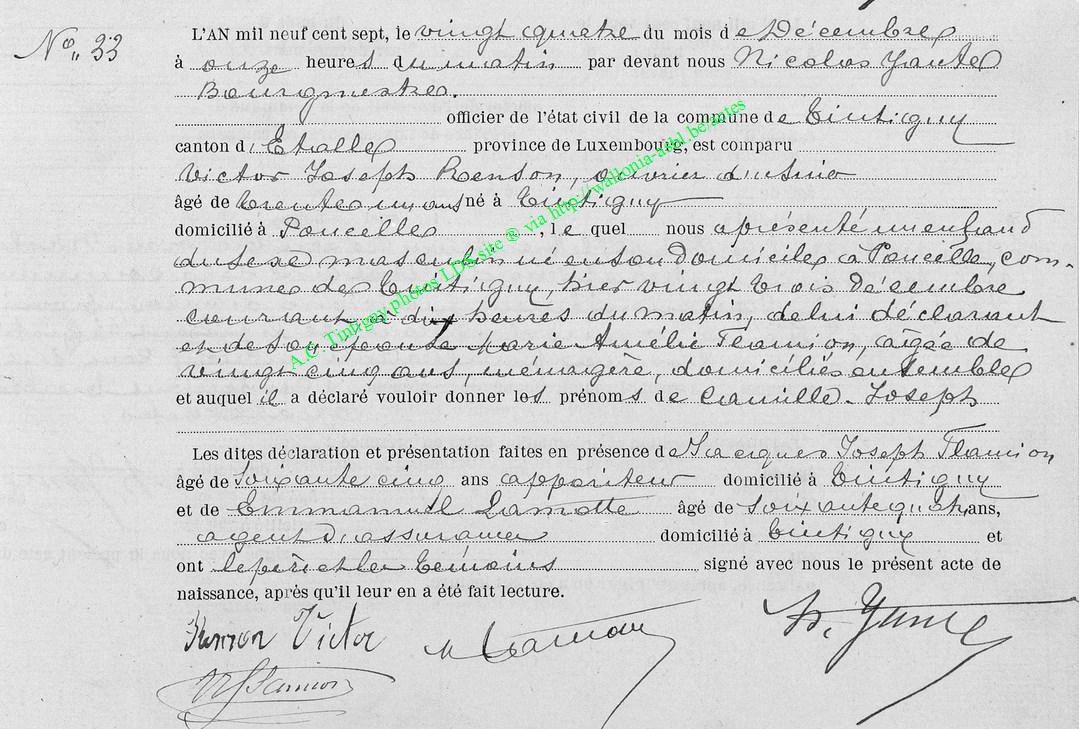 No 33
L'AN mil neuf cent sept, le vingt quatre du mois de Décembre
à onze heures du matin par devant nous Nicolas Yante
Bourgmestre.
officier de l'état civil de la commune de Tintigny
canton d'Etalle province de Luxembourg, est comparu
Victor Joseph Renson, ouvrier d'usine
âgé de trente un ans né à Tintigny
domicilié à Poncelle, le quel nous a présenté un enfant
du sexe masculin né en son domicile à Poncelle, com-
mune de Tintigny, hier vingt trois Décembre
courant à dix heures du matin, de lui déclarant
et de son épouse Marie Amélie Flamion, âgée de
vingt cinq ans, ménagère, domiciliés ensemble
et auquel il a déclaré vouloir donner les prénoms de Camille-Joseph
Les dites déclaration et présentation faites en présence de Jacques Joseph Flamion
âgé de soixante cinq ans appariteur domicilié à Tintigny
et de Emmanuel Lamotte âgé de soixante quatre ans,
agent d'assurances domicilié à Tintigny et
ont le père et les témoins signé avec nous le présent acte de
naissance, après qu'il leur en a été fait lecture.
Renson Victor
N. Yante
Flamion
A.C. Tintigny photos LDS site ® via http://wallonia-asbl.be/actes